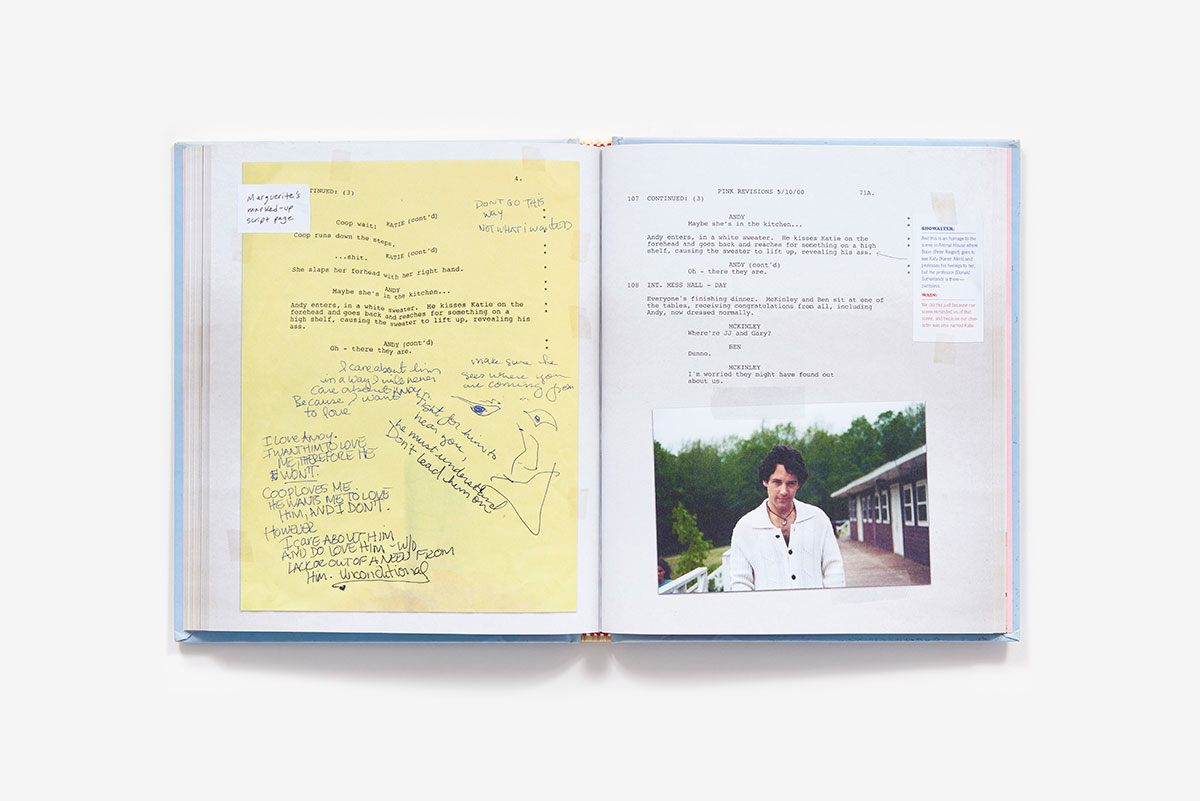 4.
Marguerite's
marked-up
script page
TINUED: (3)
DON'T GO THIS
WAY
NOT WHAT I WANTED
KATIE (cont'd)
Coop wait:
Coop runs down the steps.
KATIE (cont'd)
...shit.
She slaps her forhead with her right hand.
ANDY
Maybe she's in the kitchen...
Andy enters, in a white sweater. He kisses Katie on the
forehead and goes back and reaches for something on a
high shelf, causing the sweater to lift up, revealing his
ass.
ANDY (cont'd)
Oh - there they are.
I care about him
in a way I will never
care about Andy
Because I want
to love
make sure he
sees where you
are coming from
fight for him to
hear you,
he must understand
Don't lead him on
I LOVE ANDY.
I WANT HIM TO LOVE
ME THEREFORE HE
WON'T.
COOP LOVES ME.
HE WANTS ME TO LOVE
HIM, AND I DON'T.
HOWEVER
I CARE ABOUT HIM
AND DO LOVE HIM - W/O
LACK OR OUT OF A NEED FROM
HIM. Unconditional
PINK REVISIONS 5/10/00 71A.
107 CONTINUED: (3)
ANDY
Maybe she's in the kitchen...
Andy enters, in a white sweater. He kisses Katie on the
forehead and goes back and reaches for something on a high
shelf, causing the sweater to lift up, revealing his ass.
ANDY (cont'd)
Oh - there they are.
108 INT. MESS HALL - DAY
Everyone's finishing dinner. McKinley and Ben sit at one of
the tables, receiving congratulations from all, including
Andy, now dressed normally.
MCKINLEY
Where're JJ and Gary?
BEN
Dunno.
MCKINLEY
I'm worried they might have found out
about us.
SHOWALTER:
And this is an homage to the
scene in Animal House where
Boon (Peter Riegert) goes to
see Katy (Karen Allen) and
professes his feelings to her,
but the professor (Donald
Sutherland) is there—
pantless.
WAIN:
We did this just because our
scene reminded us of that
scene, and because our char-
acter was also named Katie.